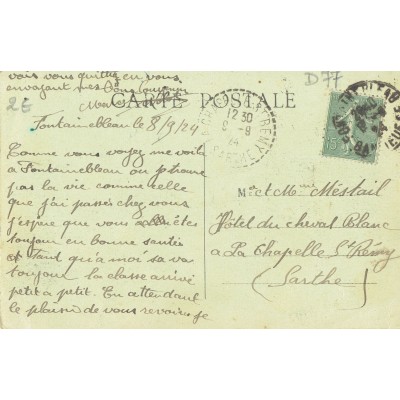 vais vous quitter en vous
envoyant mes bons
CARTE POSTALE
D77
2E
Fontainebleau le 8/9/24
Comme vous voyez me voilà
à Fontainebleau ou je trouve
pas la vie comme celle
que j'ai passés chez vous
j'espere que vous êtes
toujour en bonne santée
et tant qu'a moi sa va
toujour la classe arrive
petit à petit. En attendant
le plaisir de vous revoir je
12 30
9 -9
24
SARTHE
M et Mme Méstail
Hôtel du cheval Blanc
à La Chapelle St Rémy
(Sarthe)